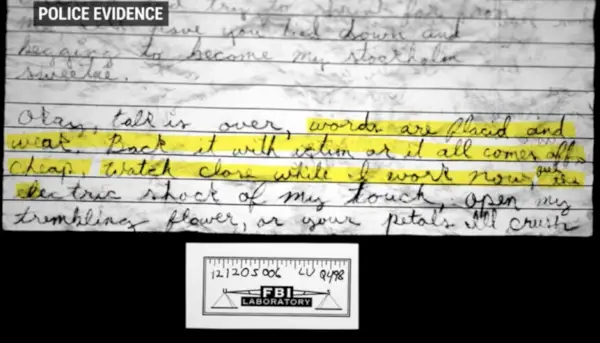 POLICE EVIDENCE
have you tied down and
begging to become my stockholm
sweetie.
Okay, talk is over, words are placid and
weak. Back it with action or it all comes off
cheap. Watch close while I work now, feel the
electric shock of my touch, open my
trembling flower, or your petals I'll crush
121205006 LU Q498
FBI
LABORATORY